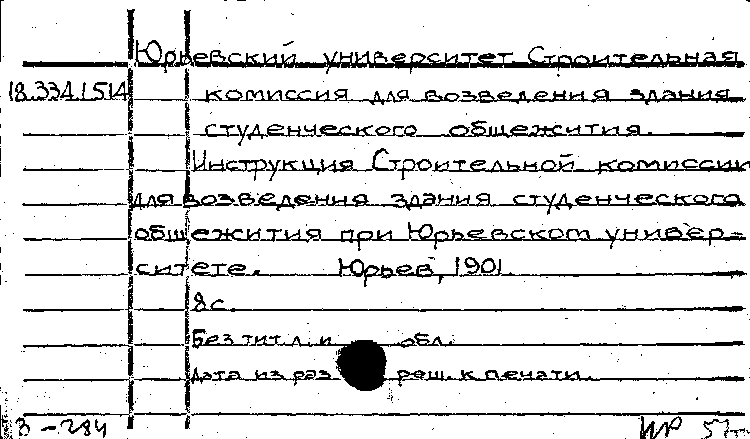 Юрьевский университет Строительная
18.334.1514 комиссия для возведения здания
студенческого общежития.
Инструкция Строительной комиссии
для возведения здания студенческого
общежития при Юрьевском универ-
ситете. Юрьев, 1901.
8 с.
Без тит. л. и обл.
Дата из раз реш. к печати.
В-284